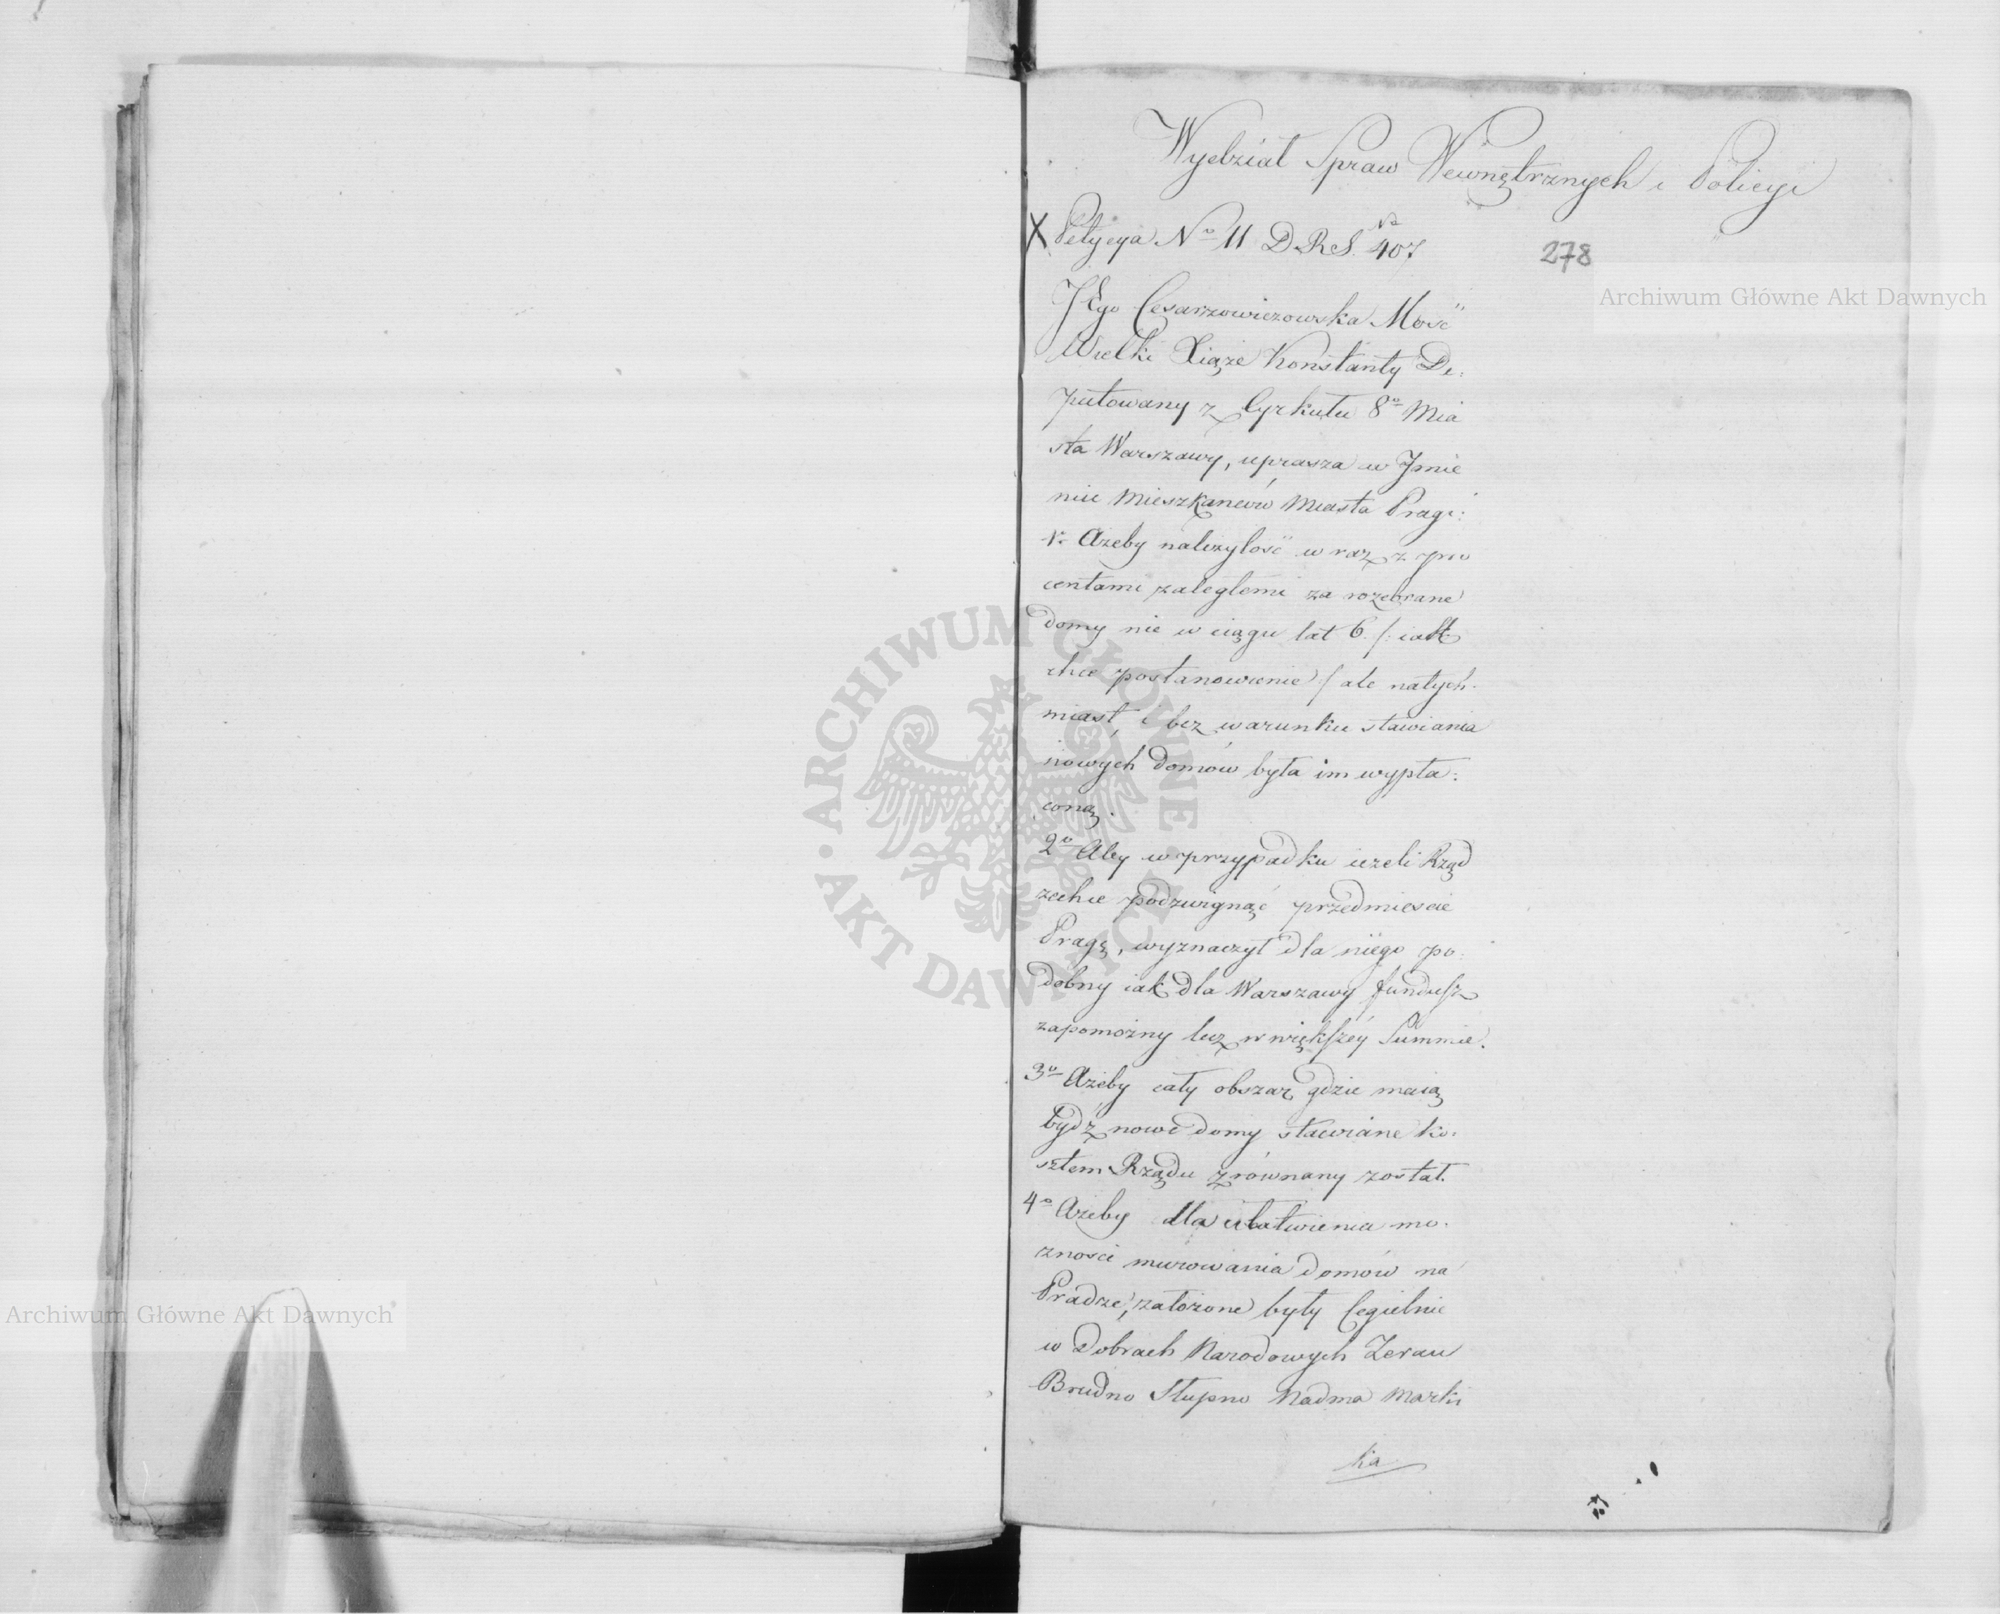 Wydział Spraw Wewnętrznych i Policyi
X Petycya Nº 11 D.R.S. Nº 407
278
JEgo Cesarzowiczowska Mość
Wielki Xiąże Konstanty De:
putowany z Cyrkułu 8º Mia
sta Warszawy, uprasza w Jmie
niu Mieszkańców Miasta Pragi:
1º Ażeby należytość w raz z pro
centami zaległemi za rozebrane
domy nie w ciągu lat 6. /: iak
chce postanowienie / ale natych-
miast, i bez warunku stawiania
nowych domów była im wypła:
coną.
2º Aby w przypadku ieżeli Rząd
zechce podzwignąć przedmieście
Pragę, wyznaczył dla niego po:
dobny iak dla Warszawy fundusz
zapomożny lecz w większéy Summie.
3º Ażeby cały obszar gdzie maią
bydź nowe domy stawiane ko-
sztem Rządu zrównany został.
4º Ażeby dla ułatwienia mo-
żności murowania domów na
Pradze, założone były Cegielnie
w dobrach Narodowych Zeran
Brudno Słupno Nadma Marki
ka
Archiwum Główne Akt Dawnych
Archiwum Główne Akt Dawnych
ARCHIWUM GŁÓWNE • AKT DAWNYCH •